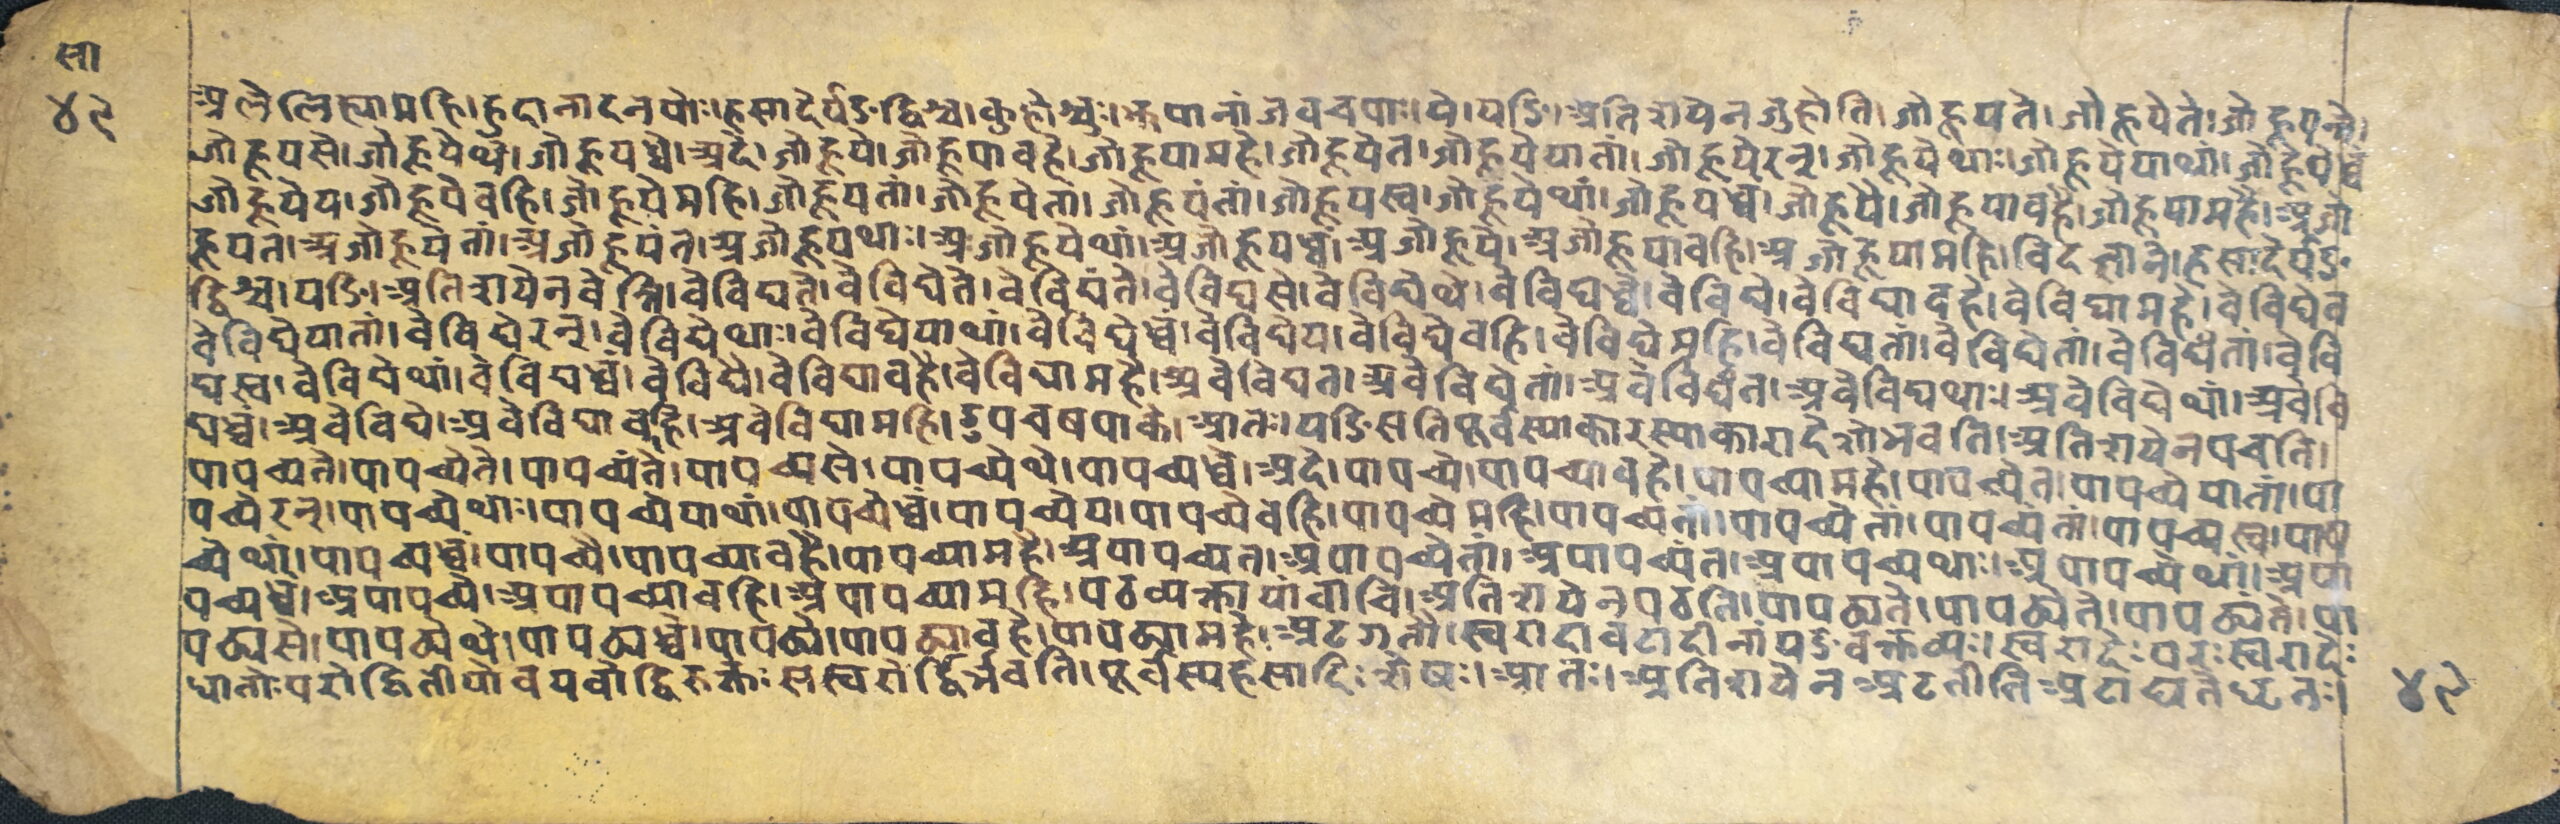 सा
४९
अलेलिह्यामहि।हुदानादनयोः।हसादेर्यङ्द्विश्च।कुहोश्चुः।झपानां जवचपाः।ये।यङि।अतिशयेन जुहोति।जोहूयते।जोहूयेते।जोहूयन्ते।
जोहूयसे।जोहूयेथे।जोहूयध्वे।अदे।जोहूये।जोहूयावहे।जोहूयामहे।जोहूयेत।जोहूयेयातां।जोहूयेरन्।जोहूयेथाः।जोहूयेयाथां।जोहूयेध्वं
जोहूयेय।जोहूयेवहि।जोहूयेमहि।जोहूयतां।जोहूयेतां।जोहूयंतां।जोहूयस्व।जोहूयेथां।जोहूयध्वं।जोहूयै।जोहूयावहै।जोहूयामहै।अजो
हूयत।अजोहूयेतां।अजोहूयंत।अजोहूयथाः।अजोहूयेथां।अजोहूयध्वं।अजोहूये।अजोहूयावहि।अजोहूयामहि।विद ज्ञाने।हसादेर्यङ्
द्विश्च।यङि।अतिशयेन वेत्ति।वेविद्यते।वेविद्येते।वेविद्यंते।वेविद्यसे।वेविद्येथे।वेविद्यध्वे।वेविद्ये।वेविद्यावहे।वेविद्यामहे।वेविद्येत
वेविद्येयातां।वेविद्येरन्।वेविद्येथाः।वेविद्येयाथां।वेविद्येध्वं।वेविद्येय।वेविद्येवहि।वेविद्येमहि।वेविद्यतां।वेविद्येतां।वेविद्यंतां।वेवि
द्यस्व।वेविद्येथां।वेविद्यध्वं।वेविद्यै।वेविद्यावहै।वेविद्यामहै।अवेविद्यत।अवेविद्येतां।अवेविद्यंत।अवेविद्यथाः।अवेविद्येथां।अवेवि
द्यध्वं।अवेविद्ये।अवेविद्यावहि।अवेविद्यामहि।डुपचषपाके।आतः।यङि सति पूर्वस्याकारस्याकारादेशो भवति।अतिशयेन पचति।
पापच्यते।पापच्येते।पापच्यंते।पापच्यसे।पापच्येथे।पापच्यध्वे।अदे।पापच्ये।पापच्यावहे।पापच्यामहे।पापच्येत।पापच्येयातां।पा
पच्येरन्।पापच्येथाः।पापच्येयाथां।पापच्येध्वं।पापच्येय।पापच्येवहि।पापच्येमहि।पापच्यतां।पापच्येतां।पापच्यंतां।पापच्यस्व।पाप
च्येथां।पापच्यध्वं।पापच्यै।पापच्यावहै।पापच्यामहै।अपापच्यत।अपापच्येतां।अपापच्यंत।अपापच्यथाः।अपापच्येथां।अपा
पच्यध्वं।अपापच्ये।अपापच्यावहि।अपापच्यामहि।पठ व्यक्तायां वाचि।अतिशयेन पठति।पापठ्यते।पापठ्येते।पापठ्यंते।पा
पठ्यसे।पापठ्येथे।पापठ्यध्वे।पापठ्ये।पापठ्यावहे।पापठ्यामहे।अट गतौ।स्वरादावटादीनां यङ् वक्तव्यः।स्वरादेः परः।स्वरादेः
धातोः परो द्वितीयोवयवो द्विरुक्तः सस्वरो द्विर्भवति।पूर्वस्य हसादिः शेषः।आतः।अतिशयेन अटतीति अटाट्यते ध्यतः।
४९